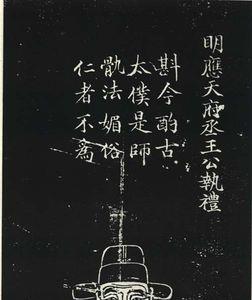 明應天府丞王公執禮
斟今酌古
太僕是師
骫法媚俗
仁者不為